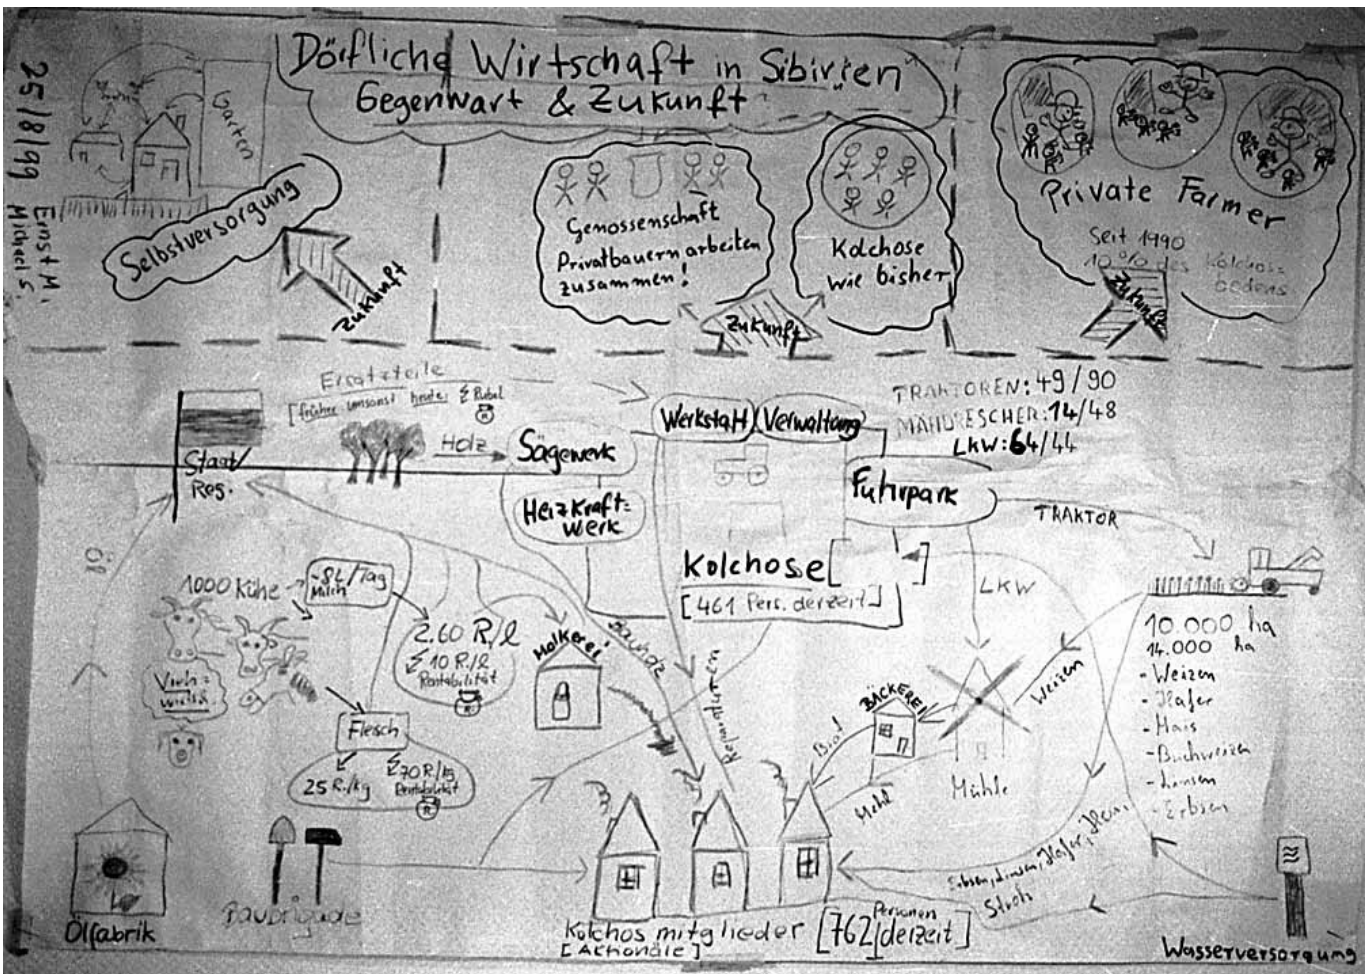 Dörfliche Wirtschaft in Sibirien
Gegenwart & Zukunft
25/8/99
Ernst M.
Michael S.
Garten
Selbstversorgung
Zukunft
Genossenschaft
Privatbauern arbeiten
zusammen!
Kolchose
wie bisher
Zukunft
Private Farmer
Seit 1990
10% des Kolchos=
bodens
Zukunft
Ersatzteile
[früher umsonst heute: Rubel
R
Staat/
Reg.
Holz
Sägewerk
Heizkraft=
werk
Werkstatt
Verwaltung
TRAKTOREN: 49/90
MÄHDRESCHER: 14/48
LKW: 64/44
Fuhrpark
TRAKTOR
LKW
Kolchose
[461 Pers. derzeit]
Öl
1000 Kühe
~8L/Tag
Milch
2.60 R/l
10 R./l
Rentabilität
R
Molkerei
Bauholz
Reparaturen
Vieh=
wirtsch.
Fleisch
25 R./kg
70 R/kg
Rentabilität
R
BÄCKEREI
Brot
Mehl
Mühle
Weizen
10.000 ha
14.000 ha
- Weizen
- Hafer
- Mais
- Buchweizen
- Linsen
- Erbsen
Erbsen, Linsen, Hafer, Heu,
Stroh
Ölfabrik
Baubrigade
Kolchosmitglieder [762 Personen derzeit]
[Aktionäre]
Wasserversorgung